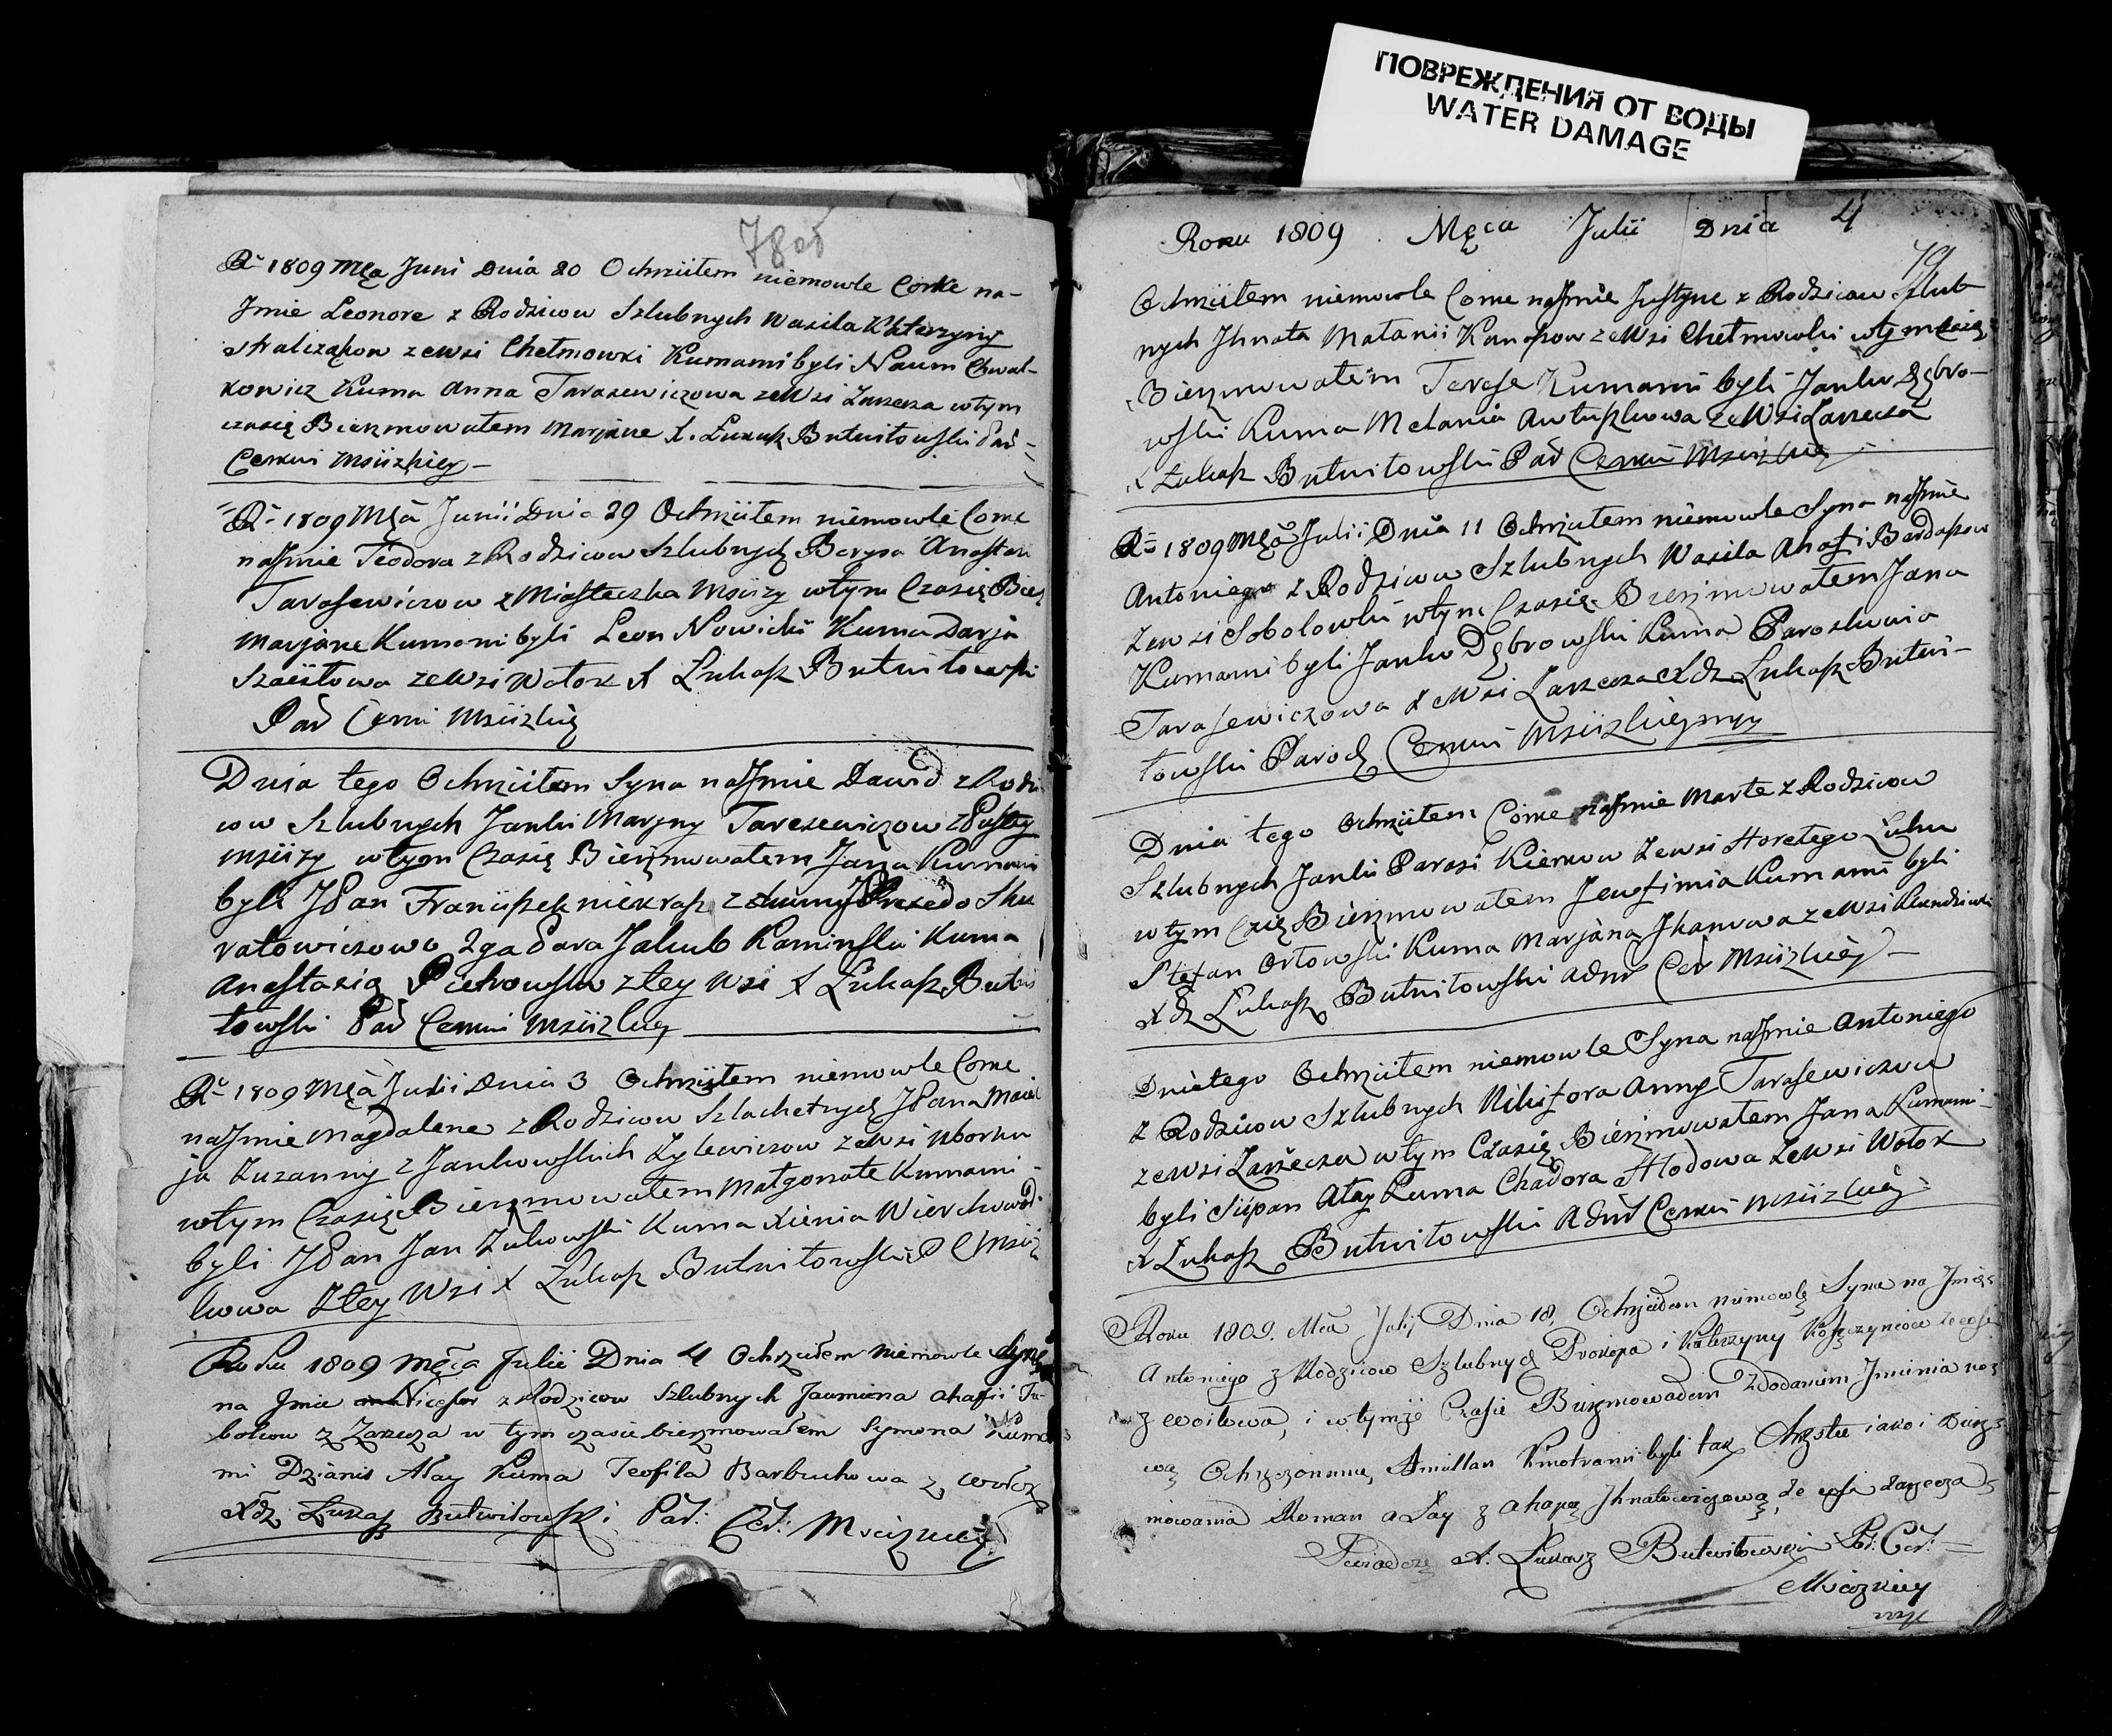 ПОВРЕЖДЕНИЯ ОТ ВОДЫ
WATER DAMAGE
78об
Ru 1809 Mca Juni Dnia 20 Ochrzciłem niemowle Corke na-
Jmie Leonore z Rodzicow Szlubnych Wasila Katerzyny
zewsi Chełmowki Kumami byli Naum Chwal-
kowicz Kuma Anna Tarasewiczowa zewsi Zarzecza wtym
czasię Bierzmowałem Marjane X. Łukasz Butwiłowski Par
Cerkwi Msciizkiey
Ru 1809 Mca Junii Dnia 29 Ochrzciłem niemowle Corke
na Jmie Teodora z Rodzicow Szlubnych Borysa Anastazii
Tarasewiczow z Miasteczka Msciizy wtym Czasię Bierz
Marjane Kumami byli Leon Nowicki Kuma Darja
zewsi Wołok X Łukasz Butwiłowski
Par Cerkwi Msciizkiey
Dnia tego Ochrzciłem Syna na Jmie Dawid z Rodzi
cow Szlubnych Janki Maryny Tarasewiczow
Msciizy wtym Czasię Bierzmowałem Jana Kumami
byli JPan Franciszek
2ga Para Jakub Kaminski Kuma
Anastazia Pietrowska ztey Wsi X Łukasz Butwi
łowski Par Cerkwi Msciizkiey
Ru 1809 Mca Julii Dnia 3 Ochrzciłem niemowle Corke
na Jmie Magdalene z Rodzicow Szlachetnych JPana Macie
ja Zuzanny z Jankowskich Zylewiczow zewsi Uborku
wtym Czasię Bierzmowałem Małgorzate Kumami
byli JPan Jan Żukowski Kuma Xienia
ztey Wsi X Łukasz Butwiłowski P C Msciiz
Roku 1809 Męca Julii Dnia 4 Ochrzciłem Niemowle Syna
na Jmie Nicefor z Rodzicow Szlubnych Jaumiena Ahafii Tu-
bolcow z Zarzecza w tym czasie bierzmowałem Symona Kuma
mi Dzianis Ałay Kuma Teofila Barbukowa z Wołok
Xdz Łukasz Butwiłowski Par: Cer: Msciizkiey
Roku 1809 Męca Julii Dnia 4
79
Ochrzciłem niemowle Corke na Jmie Justyne z Rodzicow Szlub
nych Jhnata Matanii Kanaszow zewsi Chełmowki wtym czasię
Bierzmowałem Terese Kumami byli Janko Dąbro-
wski Kuma Melania zewsi Zarzecza
X Łukasz Butwiłowski Par Cerkwi Msciizkiey
Ru 1809 Mca Julii Dnia 11 Ochrzciłem niemowle Syna na Jmie
Antoniego z Rodzicow Szlubnych Wasila Ahafi
zewsi Sobolowki wtym Czasię Bierzmowałem Jana
Kumami byli Janko Dąbrowski Kuma Paroskowia
Tarasewiczowa zewsi Zarzecza Xdz Łukasz Butwi-
łowski Paroch Cerkwi Msciizkiey mpp
Dnia tego Ochrzciłem Corke na Jmie Marte z Rodzicow
Szlubnych Janki Parasi Kierkow zewsi Horełego Ługu
wtym Czię Bierzmowałem Jeufimia Kumami byli
Stefan Orłowski Kuma Marjana Jhanowa zewsi
Xdz Łukasz Butwiłowski Admr Cer Msciizkiey
Dnia tego Ochrzciłem niemowle Syna na Jmie Antoniego
z Rodzicow Szlubnych Nikifora Anny Tarasewiczow
zewsi Zarzecza wtym Czasię Bierzmowałem Jana Kumami
byli Ałay Kuma Chadora Hłodowa zewsi Wołok
X Łukasz Butwiłowski Admr Cerkwi Msciizkiey
Roku 1809. Mca Julij Dnia 18, Ochrzciłem niemowlę Syna na Jmię
Antoniego z Rodzicow Szlubnych Prokopa i Katerzyny
i wtymże Czasie Bierzmowałem z dodaniem Jmienia no
wo Ochrzczonemu, Amillan Kmotrami byli tak Chrztu iako i Bierz
mowania Roman Ałay z Ahapą Jhnatowiczową, ze wsi Zarzecza
Swiadczę X. Łukasz Butwiłowski P: Cer:
Msciizkiey
mpp